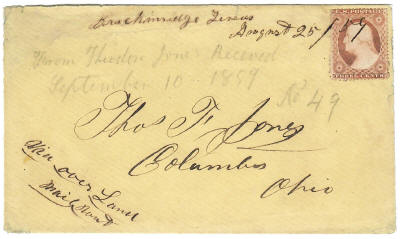 Breckinridge Texas
August 25 / 59
U.S. POSTAGE
THREE CENTS
From Theodore Jones Received
September 10 1859
No 49
Thos T. Jones
Columbus
Ohio
Via over Land
Mail Rout